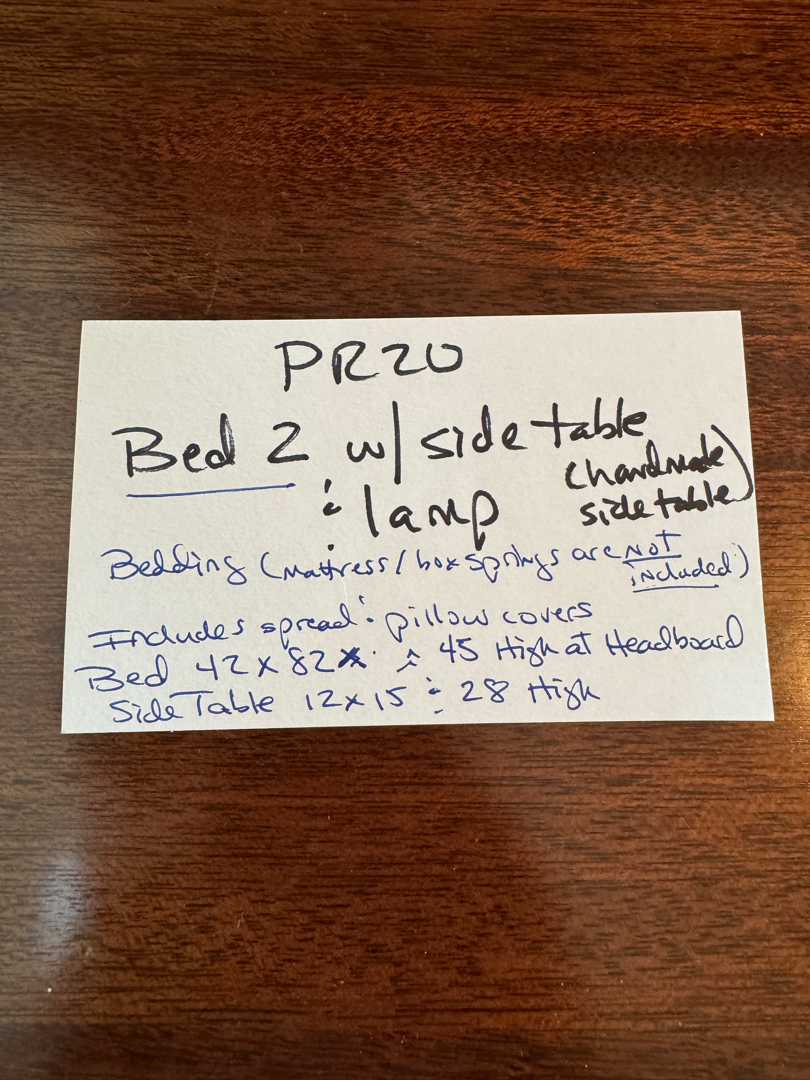 PR20
Bed 2 w/ side table
& lamp (handmade side table)
Bedding (mattress/box springs are NOT included)
Includes spread & pillow covers
Bed 42 x 82 & 45 High at Headboard
Side Table 12 x 15 & 28 High